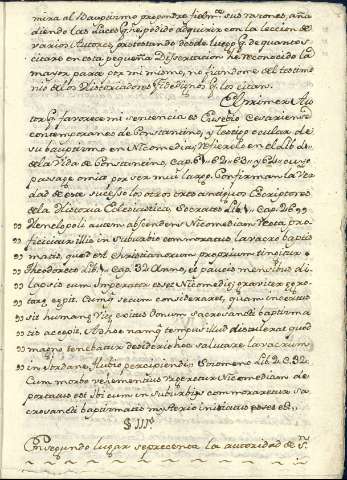 mira al Bauptismo propondre fielmte. sus razones, aña
diendo las luces q. he podido adquirir con la leccion de
varios Autores, protestando desde luego q. de quantos
citare en esta pequeña Disertacion he reconocido la
mayor parte por mi mismo, no fiandome del testimo
nio de los Historiadores Fidedignos q. los citan.
El primer Au
tor q. favorece mi sentencia es Eusebio Cesariense
contemporaneo de Constantino, y testigo ocular de
su bautismo en Nicomedia, refierelo en el lib. 4
de la Vida de Constantino, Cap. 61. 62. 63. y 64. cuyo
pasage omito por ser mui largo. Confirman la ver
dad de este sucesso los otros tres antiguos Escriptores
de la Historia Eclesiastica. Socrates Lib. 1. Cap. 26
Helenopoli autem abscedens Nicomediam recta pro
ficiscitur illic in suburbio commoratus lavacro baptis
matis, quod est Christianorum proprium tingitur
Theodoreto Lib. 1. Cap. 32. Anno, et paucis mensibus di
lapsis cum Imperator esset Nicomediæ graviter ægro
tare cepit. Cumq. secum consideraret, quam incertus
sit humanæ vitæ exitus donum sacrosancti baptisma
tis accepit. Ad hoc namq. tempus illud distulerat quod
magno tenebatur desiderio hoc salutare lavacrum
in Jordane fluvio percipiendi. Sozomeno Lib. 2. C. 32.
Cum morbo vehementius urgeretur Nicomediam de
portatus est ibi cum in suburbijs commoraretur sa
crosancti baptismatis mysterio initiatus est.
§ III.
En segundo lugar se presenta la autoridad de S.